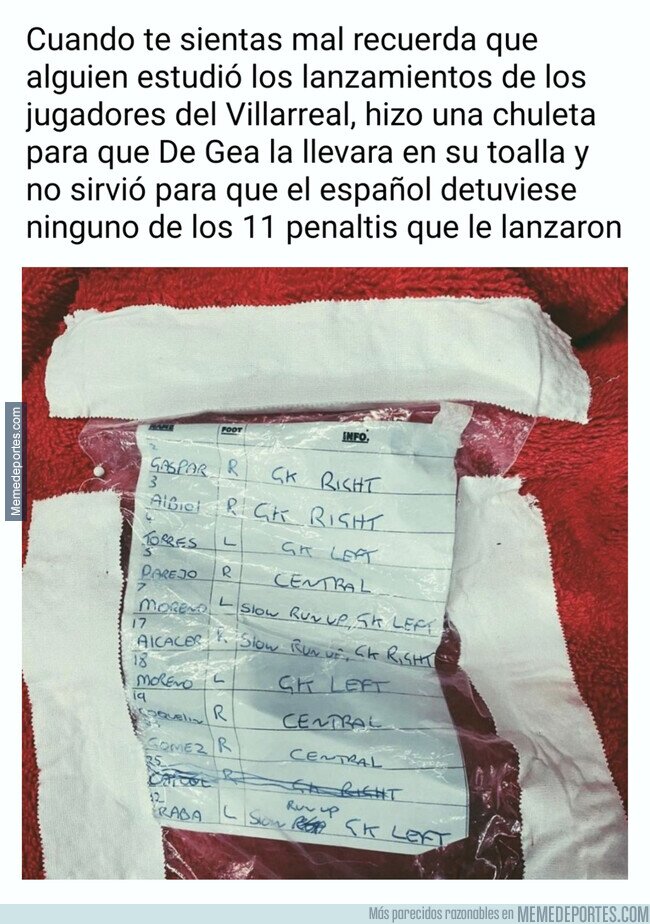 Cuando te sientas mal recuerda que
alguien estudió los lanzamientos de los
jugadores del Villarreal, hizo una chuleta
para que De Gea la llevara en su toalla y
no sirvió para que el español detuviese
ninguno de los 11 penaltis que le lanzaron
Memedeportes.com
NAME FOOT INFO.
2
GASPAR R GK RIGHT
3
Albiol R GK RIGHT
4
TORRES L GK LEFT
5
PAREJO R CENTRAL
7
MORENO L Slow RUN UP, GK LEFT
17
AlCACER R Slow RUN UP, GK RIGHT
18
MORENO L GK LEFT
19
COQUELIN R CENTRAL
GOMEZ R CENTRAL
25
R GK RIGHT
RUN UP
RABA L Slow GK LEFT
Más parecidos razonables en MEMEDEPORTES.COM